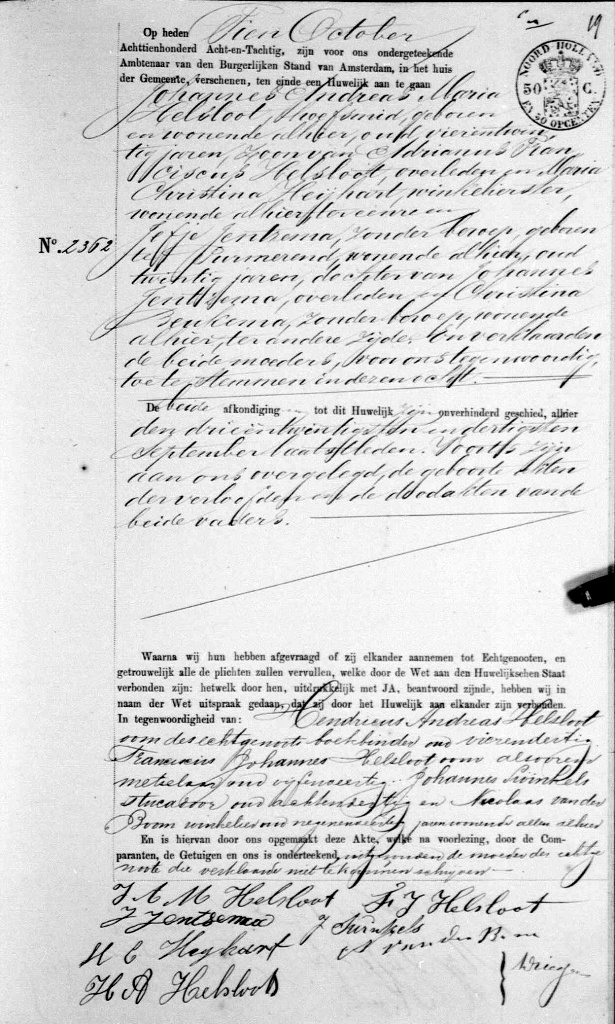 19
NOORD HOLLAND
50 C.
EN 20 OPCENTEN
Op heden Tien October
Achttienhonderd Acht-en-Tachtig, zijn voor ons ondergeteekende
Ambtenaar van den Burgerlijken Stand van Amsterdam, in het huis
der Gemeente, verschenen, ten einde een Huwelijk aan te gaan
Johannes Andreas Maria
Helsloot, hoefsmid, geboren
en wonende alhier, oud vierentwin
tig jaren, zoon van Adrianus Fran
ciscus Helsloot, overleden en Maria
Christina Heijkart, winkelierster,
wonende alhier ter eenre en
No. 2362
Jetje Jentzema, zonder beroep, geboren
te Purmerend, wonende alhier, oud
twintig jaren, dochter van Johannes
Jentzema, overleden en Christina
Beukema, zonder beroep, wonende
alhier, ter andere zijde. En verklaarden
de beide moeders, voor ons tegenwoordig,
toe te stemmen in deze echt.
De beide afkondigingen tot dit Huwelijk zijn onverhinderd geschied, alhier
den drieëntwintigsten en dertigsten
September laatstleden. Voorts zijn
aan ons overgelegd, de geboorte akten
der verloofden en de doodakten van de
beide vaders.
Waarna wij hun hebben afgevraagd of zij elkander aannemen tot Echtgenooten, en
getrouwelijk alle de plichten zullen vervullen, welke door de Wet aan den Huwelijkschen Staat
verbonden zijn: hetwelk door hen, uitdrukkelijk met JA, beantwoord zijnde, hebben wij in
naam der Wet uitspraak gedaan, dat zij door het Huwelijk aan elkander zijn verbonden.
In tegenwoordigheid van: Hendricus Andreas Helsloot
oom des echtgenoots boekbinder oud vierendertig
Franciscus Johannes Helsloot oom alsvoren
metselaar oud vijfenveertig, Johannes Swinkels
stucadoor oud achtenveertig en Nicolaas van der
Boom winkelier oud negenenveertig jaren wonende allen alhier
En is hiervan door ons opgemaakt deze Akte, welke na voorlezing, door de Com-
paranten, de Getuigen en ons is onderteekend, uitgezonderd de moeder der echtge
note die verklaarde niet te kunnen schrijven
J A M Helsloot F J Helsloot
J Jentzema J Swinkels
M C Heykart N van der Boom
H A Helsloot